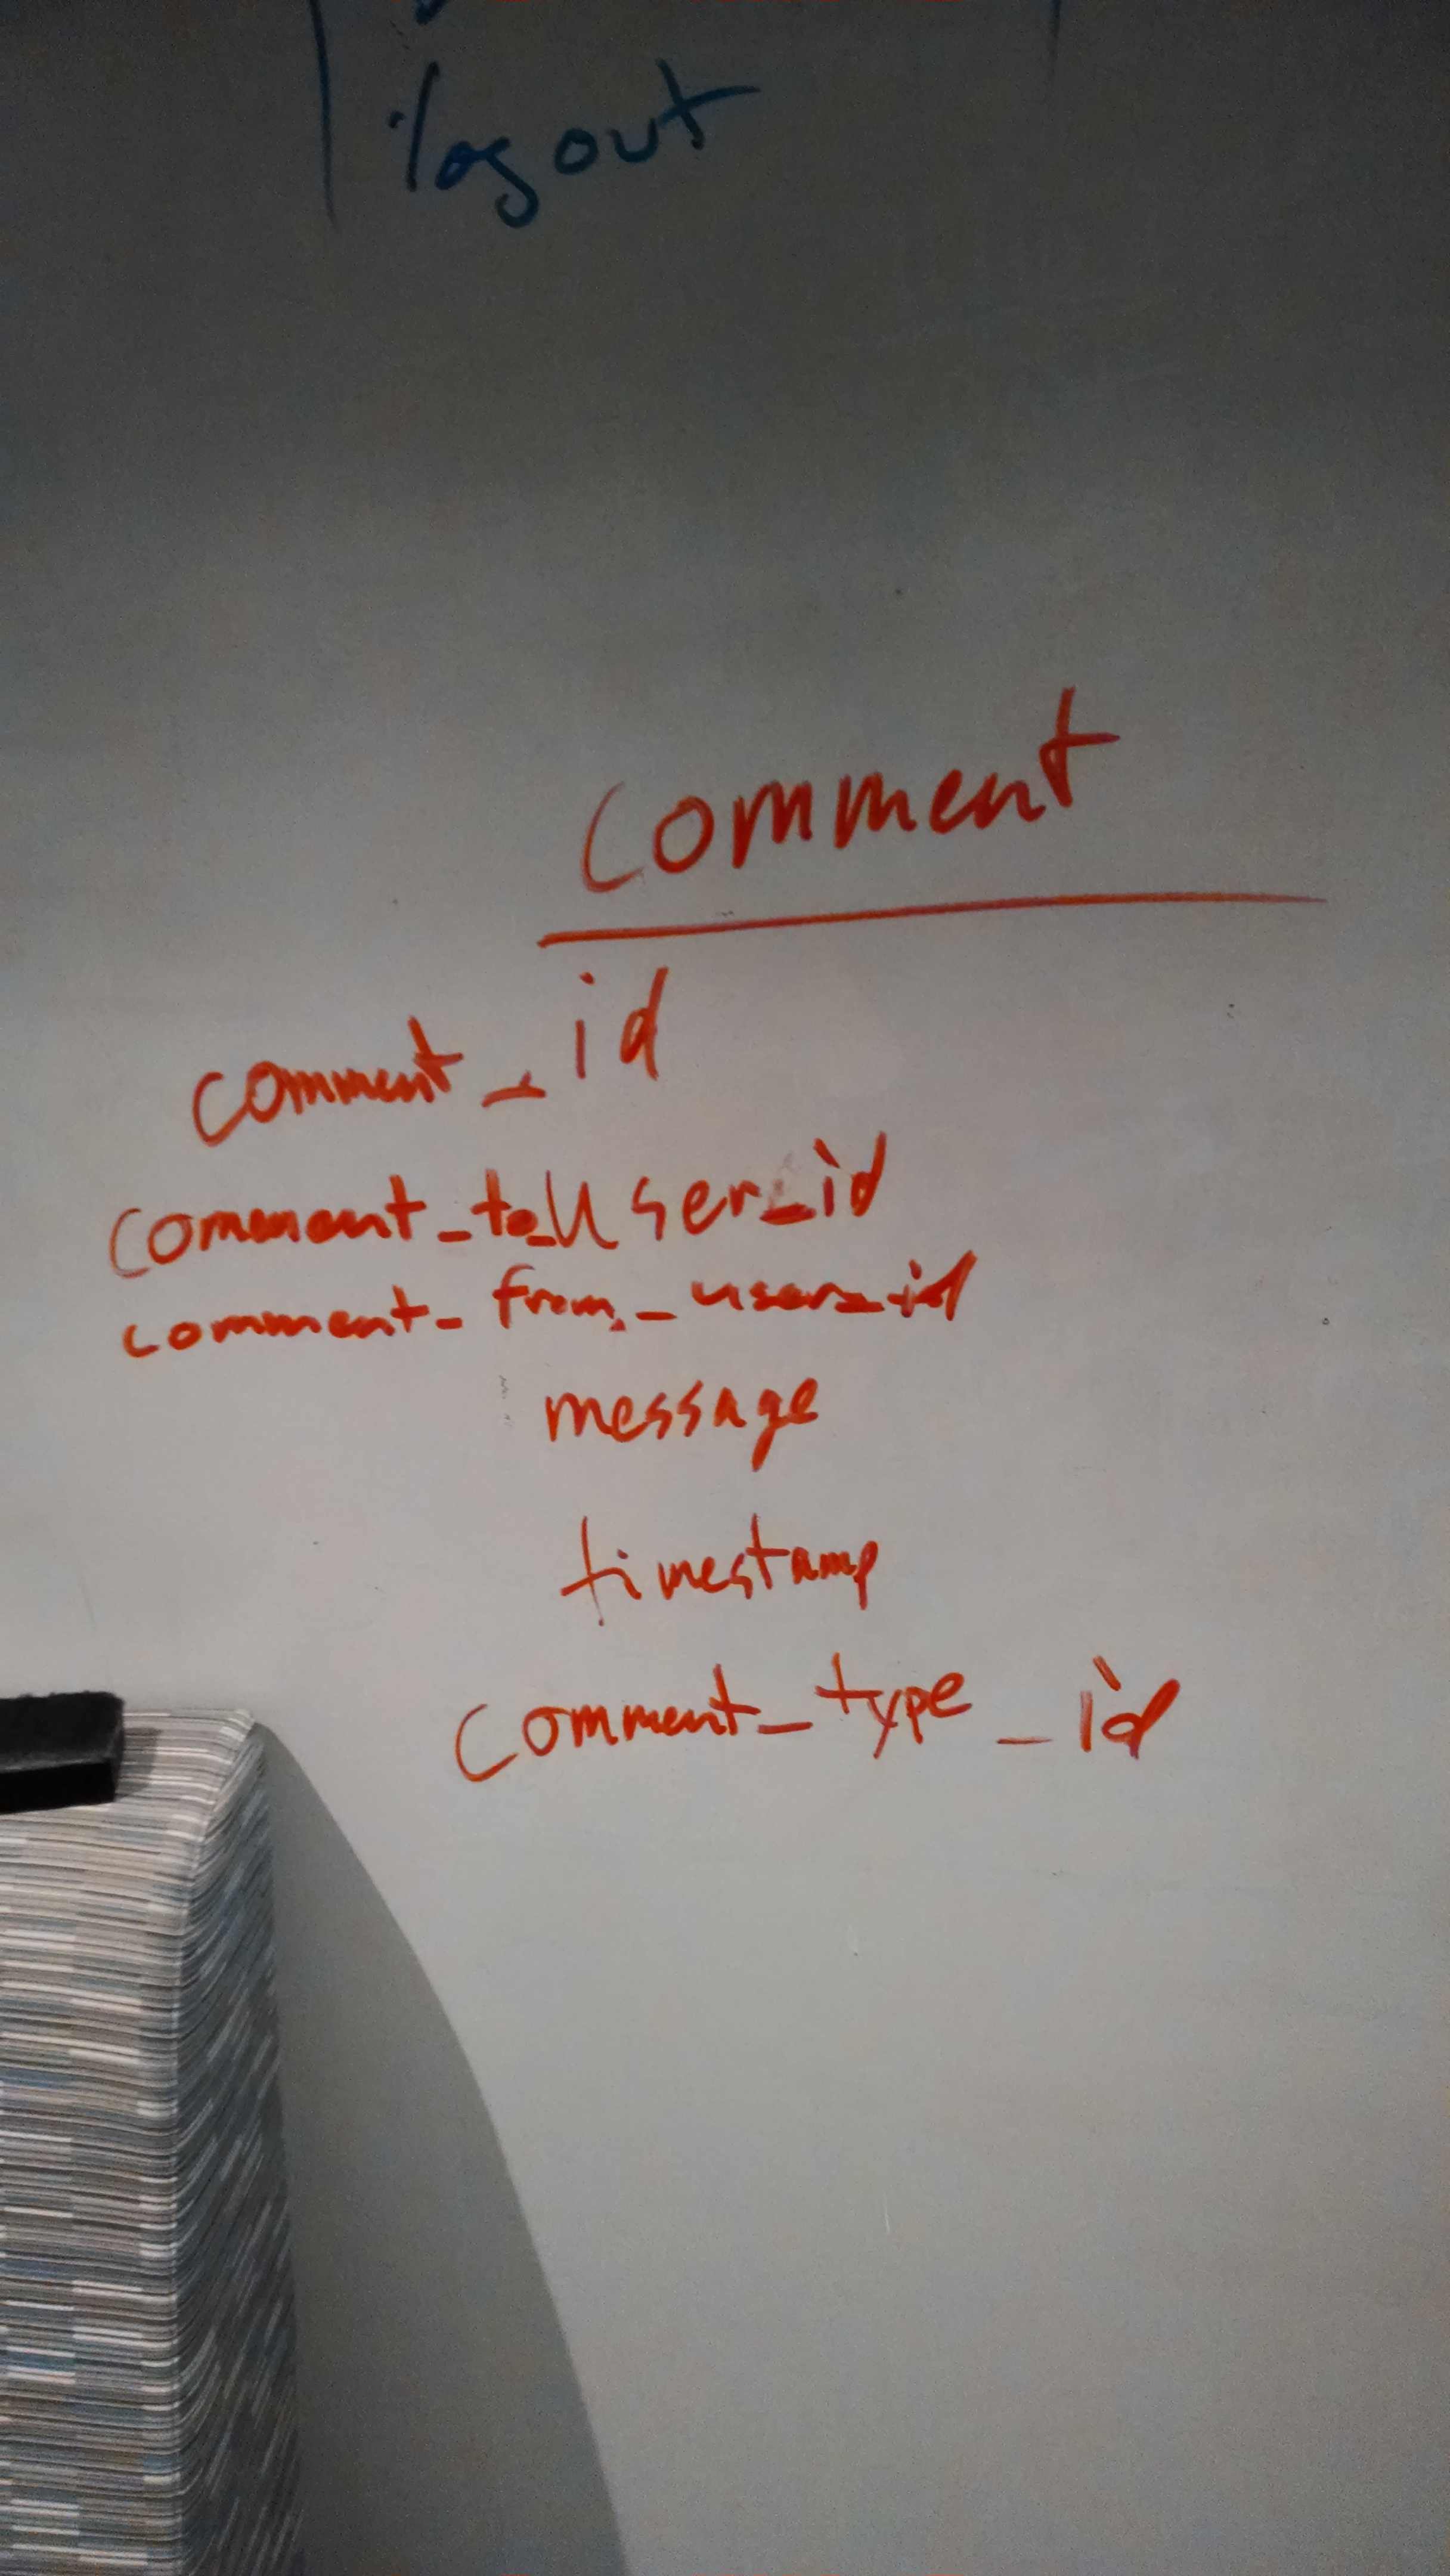 logout
comment
comment_id
comment_to_user_id
comment_from_user_id
message
timestamp
comment_type_id